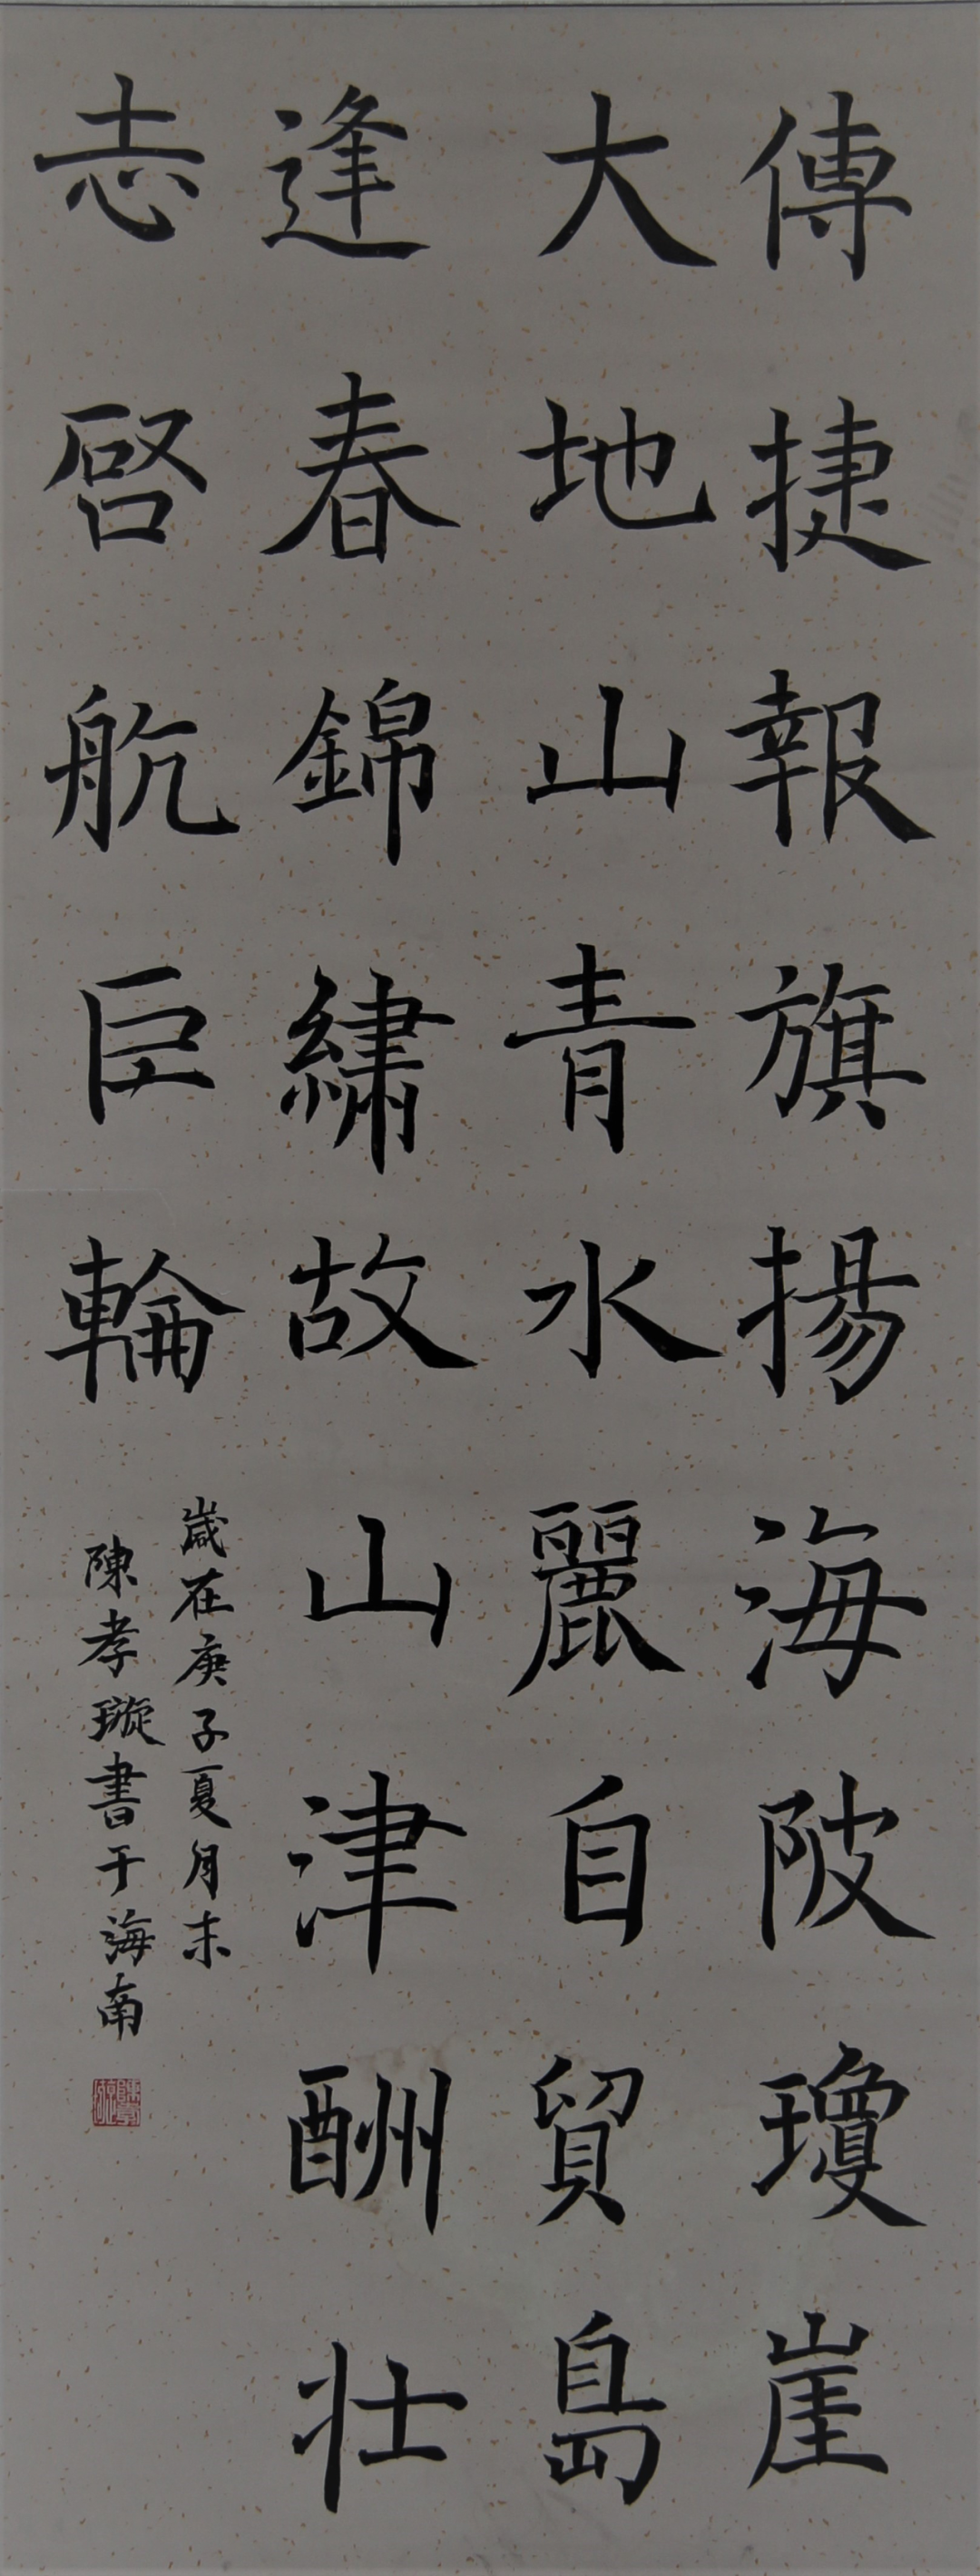 傳捷報旗揚海陂瓊崖
大地山青水麗自貿島
逢春錦繡故山津酬壮
志啓航巨輪
歲在庚子夏月末
陳孝璇書于海南